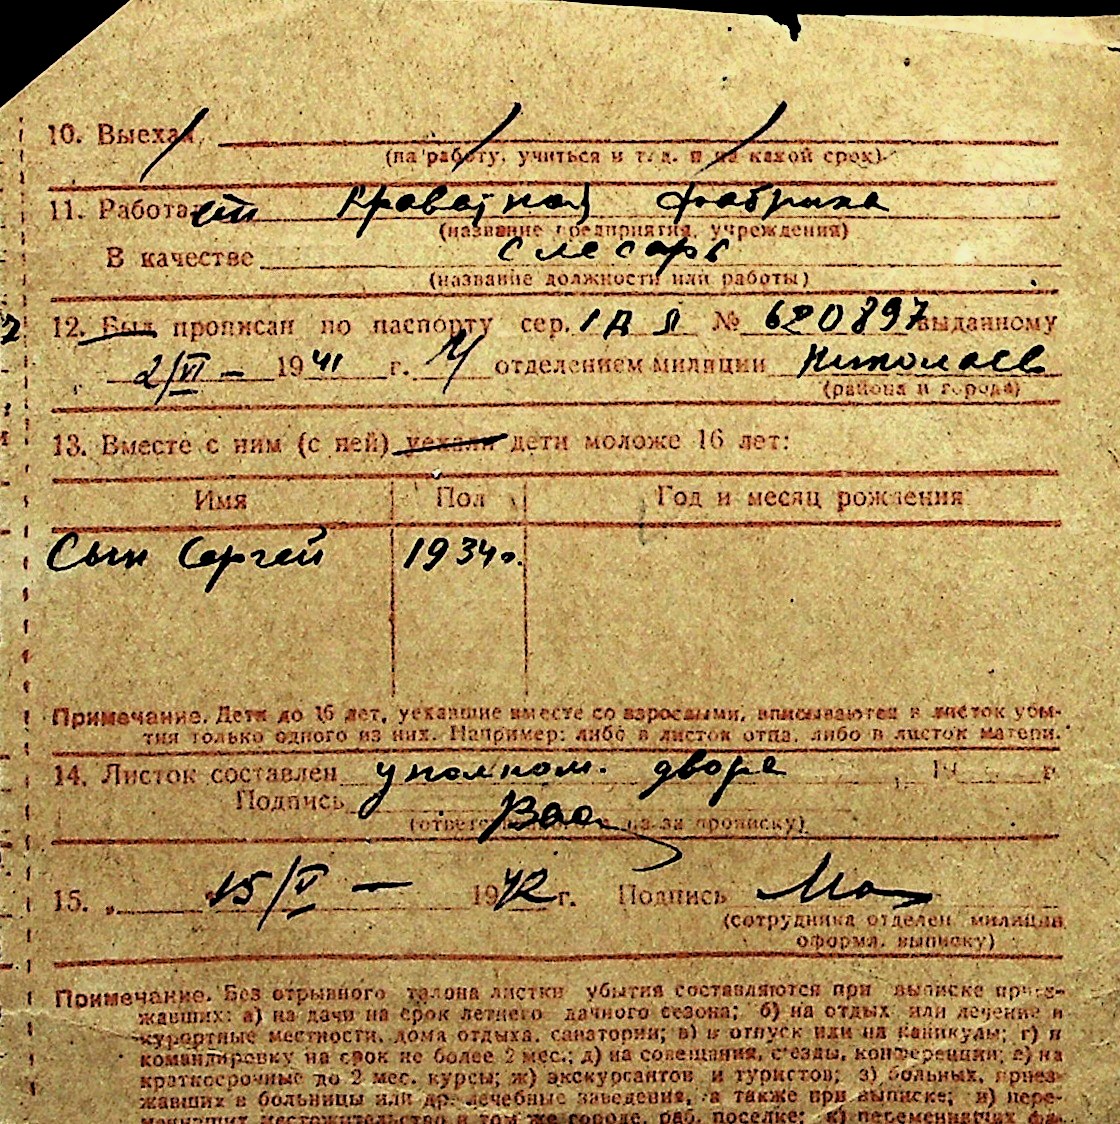 10. Выехал
(на работу, учиться и т. д. и на какой срок)
11. Работает Кроватная фабрика
(название предприятия, учреждения)
В качестве слесарь
(название должности или работы)
12. Был прописан по паспорту сер. № 620897 выданному
2/VI – 1941 г. отделением милиции Николаев
(района и города)
13. Вместе с ним (с ней) уехали дети моложе 16 лет:
Имя Пол Год и месяц рождения
Сын Сергей 1934 г.
Примечание. Дети до 16 лет, уехавшие вместе со взрослыми, вписываются в листок убы-
тия только одного из них. Например: либо в листок отца, либо в листок матери.
14. Листок составлен уполном. двора 19 г.
Подпись
(ответств. за прописку)
15. „ 15/V – 1942 г. Подпись
(сотрудника отделен. милиции
оформл. выписку)
Примечание. Без отрывного талона листки убытия составляются при выписке приез-
жавших: а) на дачи на срок летнего дачного сезона; б) на отдых или лечение в
курортные местности, дома отдыха, санатории; в) в отпуск или на каникулы; г) в
командировку на срок не более 2 мес.; д) на совещания, съезды, конференции; е) на
краткосрочные до 2 мес. курсы; ж) экскурсантов и туристов; з) больных, приез-
жавших в больницы или др. лечебные заведения, а также при выписке; и) пере-
менивших местожительство в том же городе, раб. поселке; к) переменивших фа-